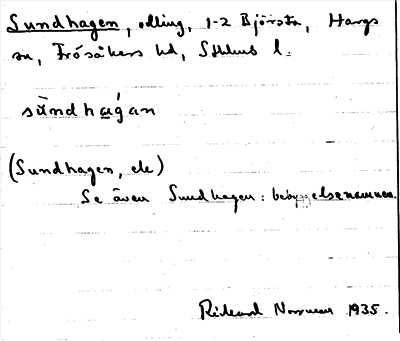 Sundhagen, odling, 1-2 Björsta, Hargs
sn, Frösåkers hd, Sthlms l.
sùndhagan
(Sundhagen, ele)
Se även Sundhagen: bebyggelsenamnen.
Rickard Norrman 1935.